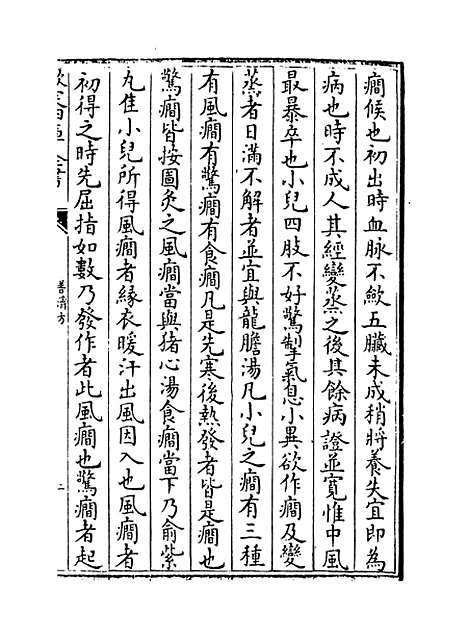 癎候也初出時血脉不斂五臟未成稍將養失宜即為
病也時不成人其經變蒸之後其餘病證並寛惟中風
最暴卒也小兒四肢不好驚掣氣息小異欲作癎及變
蒸者日滿不解者並宜與龍膽湯凡小兒之癎有三種
有風癎有驚癎有食癎凡是先寒後熱發者皆是癎也
驚癎皆按圖灸之風癎當與猪心湯食癎當下乃愈紫
丸隹小兒所得風癎者縁衣暖汗出風因入也風癎者
初得之時先屈指如數乃發作者此風癎也驚癎者起
欽定四庫全書
普濟方
二